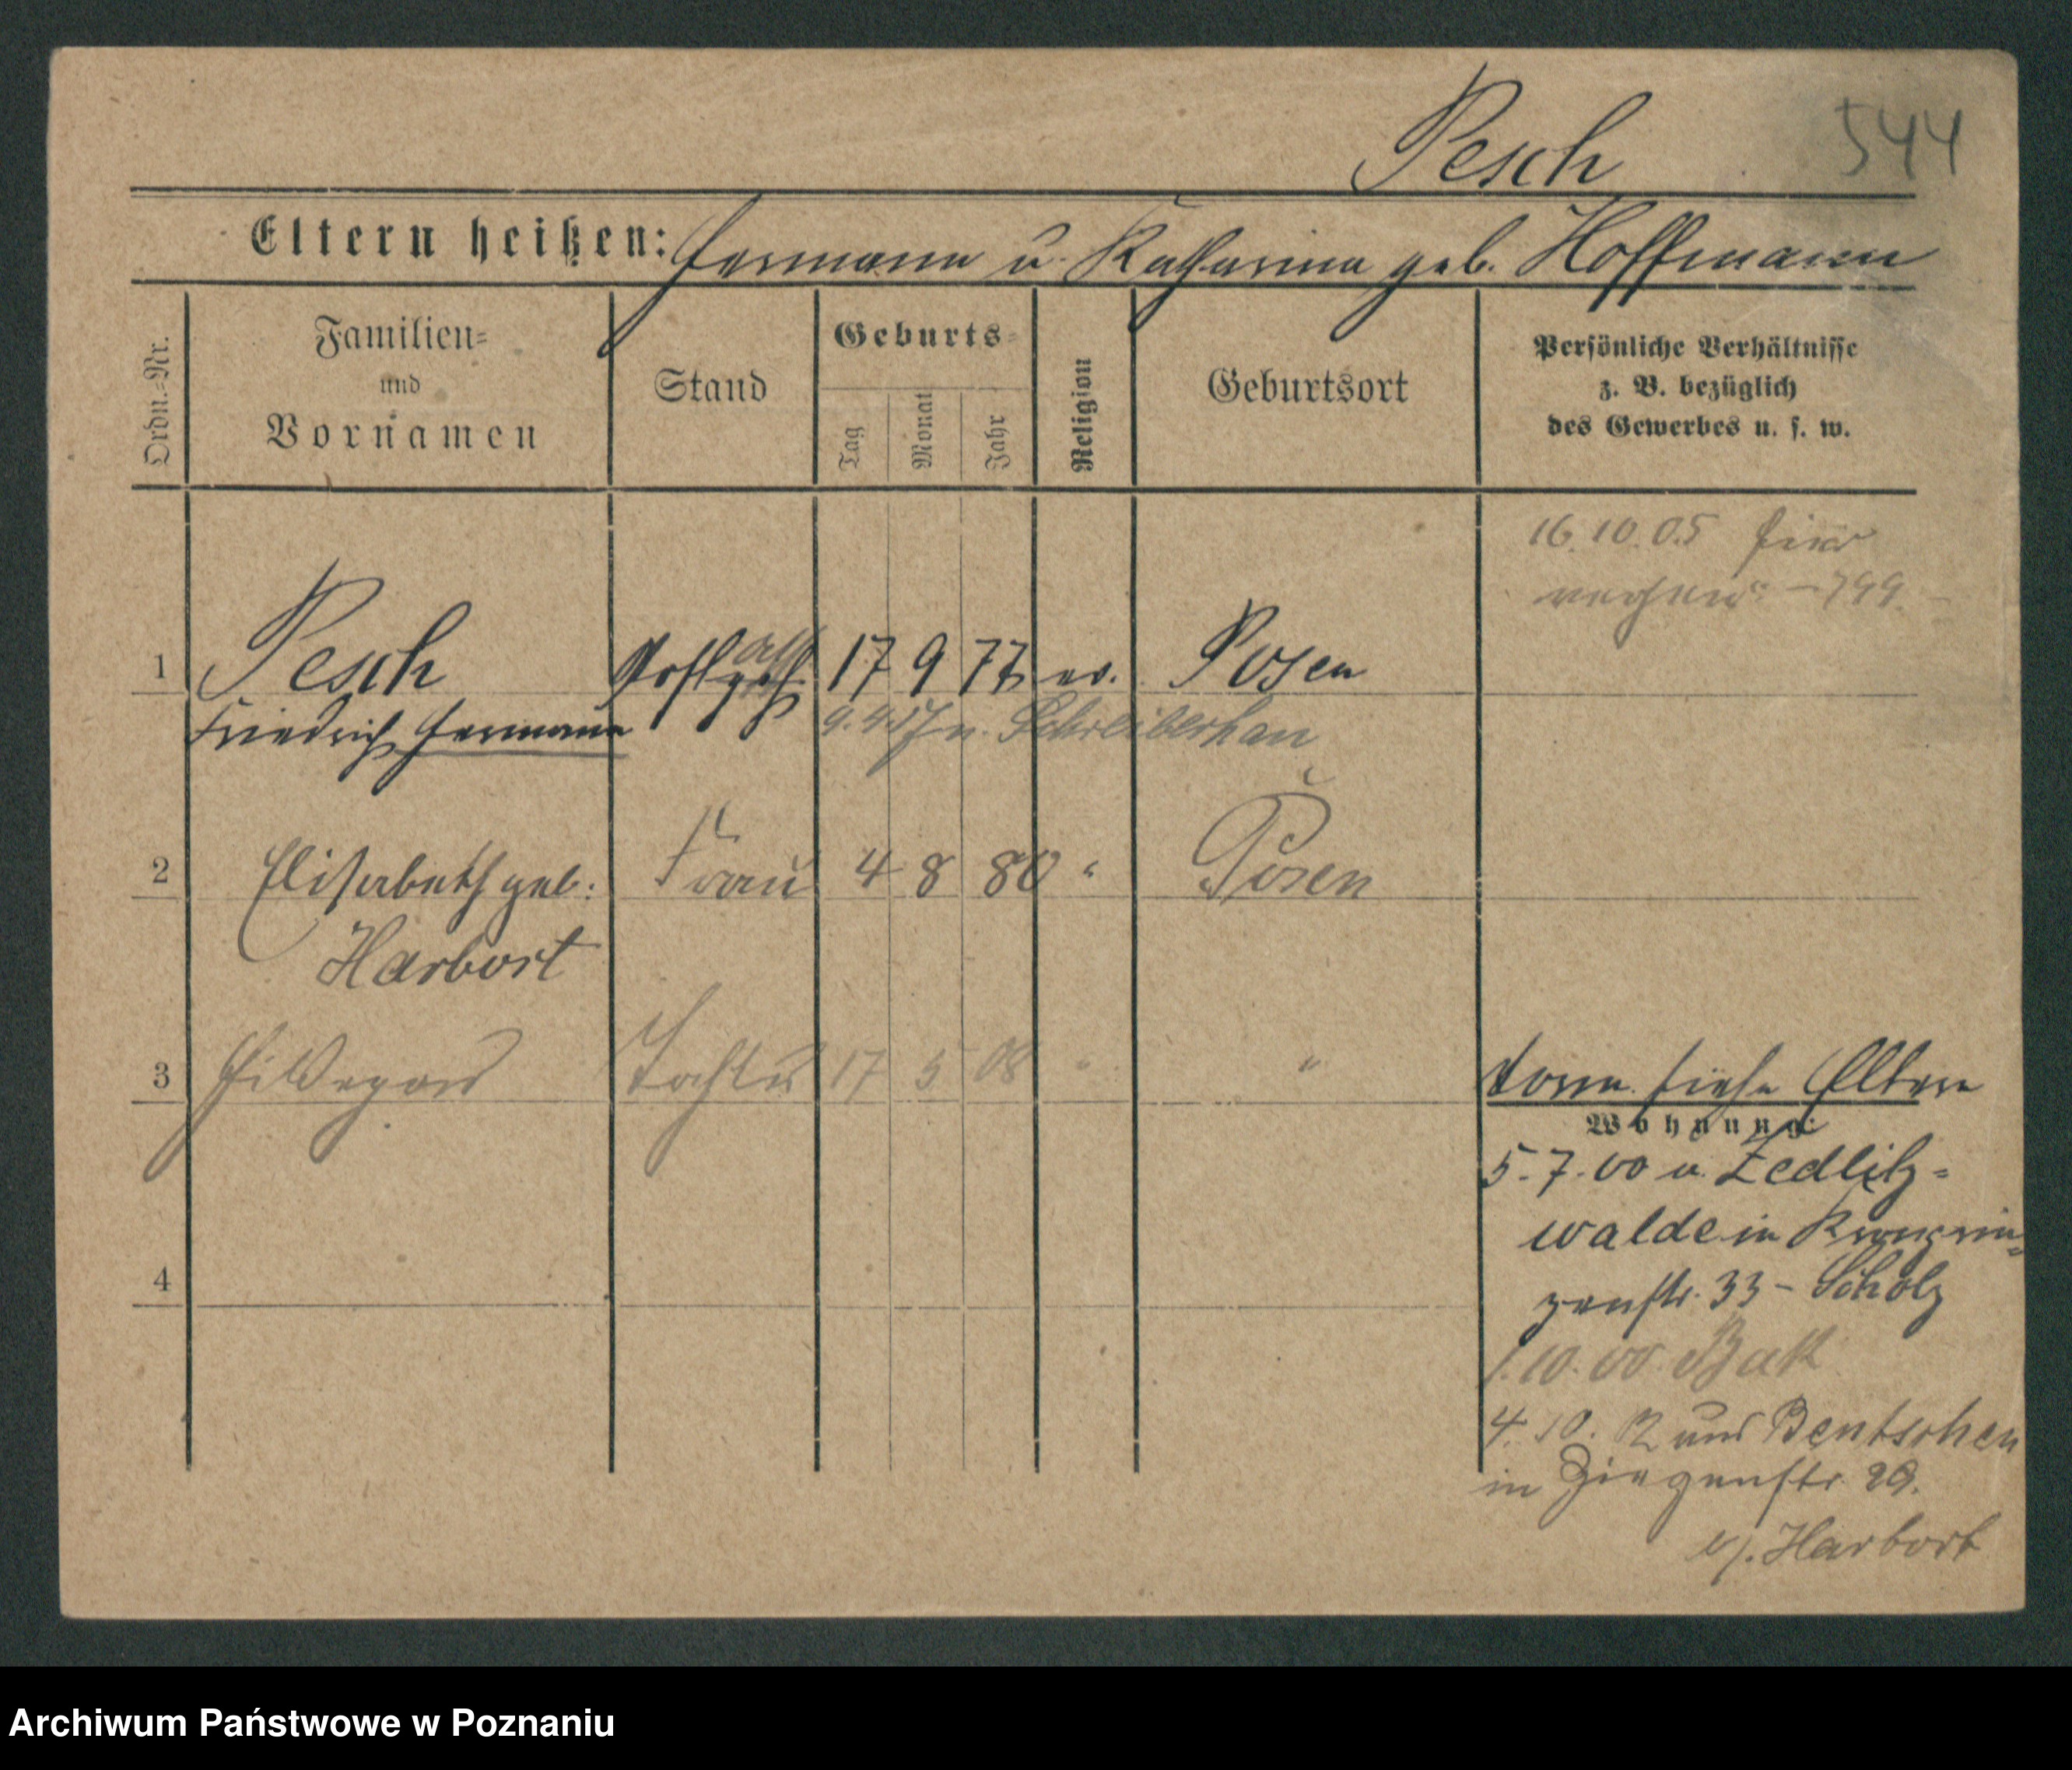 Pesch 544
Eltern heißen: Hermann u. Katharina geb. Hoffmann
Ordn.=Nr.
Familien=
und
Vornamen
Stand
Geburts=
Tag
Monat
Jahr
Religion
Geburtsort
Persönliche Verhältnisse
z. B. bezüglich
des Gewerbes u. s. w.
16.10.05
1 Pesch 17 9 77 ev. Posen
Friedrich Hermann
n. Schreiberhau
2 Elisabeth geb. Frau 4 8 80 " Posen
Harbort
3 Hildegard Tochter 17 5 08 " "
vorm. siehe Eltern
Wohnung:
5.7.00 v. Zedlitz=
walde in Kronprin=
zenstr. 33 – Scholz
4
1.10.00
4.10. 12 aus Bentschen
in Ziegenstr. 29.
b/. Harbort
Archiwum Państwowe w Poznaniu